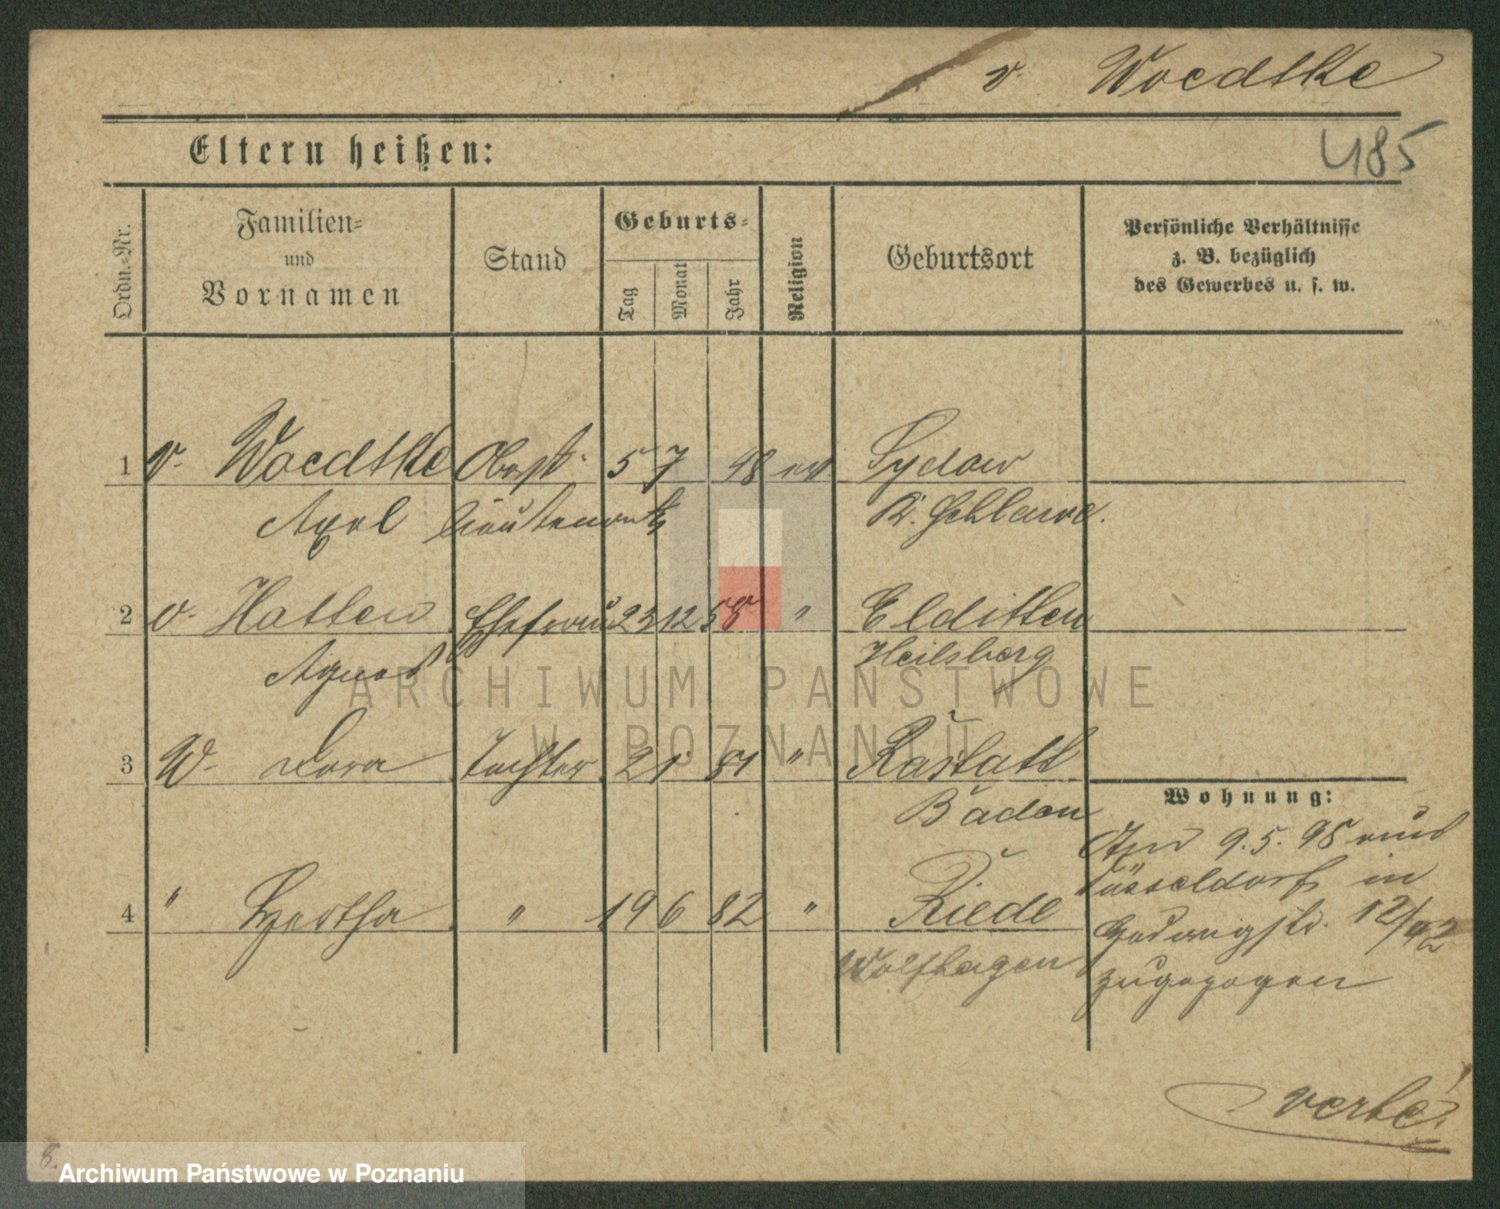 v. Woedtke
485
Eltern heißen:
Ordn.-Nr.
Familien-
und
Vornamen
Stand
Geburts-
Tag
Monat
Jahr
Religion
Geburtsort
Persönliche Verhältnisse
z. B. bezüglich
des Gewerbes u. s. w.
1 v. Woedtke Oberst- 5 7 48 ev Sydow
Axel lieutenant Kr. Schlawe.
2 v. Hatten Ehefrau 23 12 55 " Elditten
Agnes Heilsberg
3 W. Dora Tochter 2 1 81 " Rastatt
Baden
4 " Hertha " 19 6 82 " Riede
Wolfhagen
Wohnung:
Am 9.5.98 aus
Düsseldorf in
Hedwigstr. 12/92
zugezogen
8.
ARCHIWUM PAŃSTWOWE
W POZNANIU
Archiwum Państwowe w Poznaniu